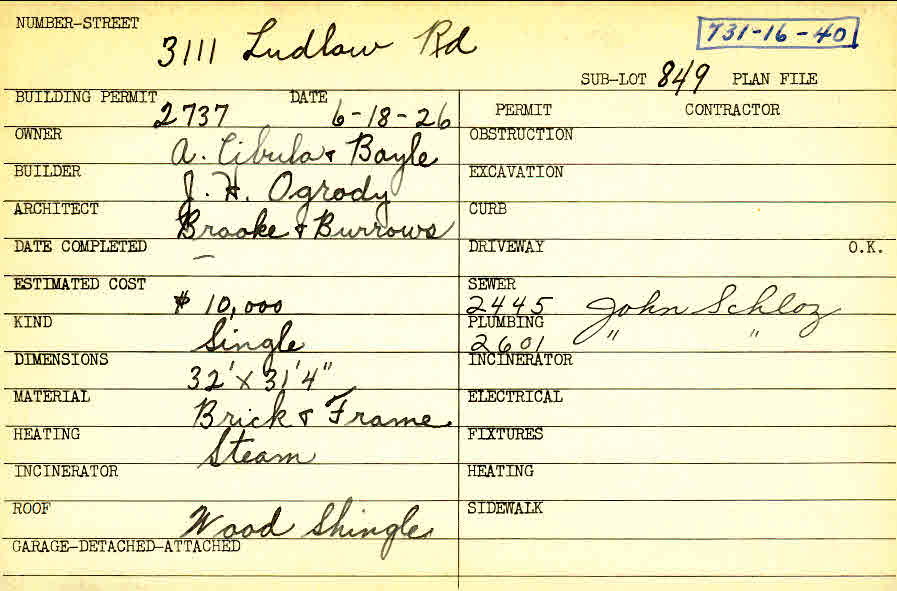 NUMBER-STREET
3111 Ludlow Rd
731-16-40
SUB-LOT 849 PLAN FILE
BUILDING PERMIT 2737 DATE 6-18-26
PERMIT CONTRACTOR
OWNER A. Cibula & Boyle
OBSTRUCTION
BUILDER J. H. Ogrody
EXCAVATION
ARCHITECT Brooke & Burrows
CURB
DATE COMPLETED –
DRIVEWAY O.K.
ESTIMATED COST $ 10,000
SEWER 2445 John Schloz
KIND Single
PLUMBING 2601 " "
DIMENSIONS 32' x 31'4"
INCINERATOR
MATERIAL Brick & Frame
ELECTRICAL
HEATING Steam
FIXTURES
INCINERATOR
HEATING
ROOF Wood Shingle
SIDEWALK
GARAGE-DETACHED-ATTACHED